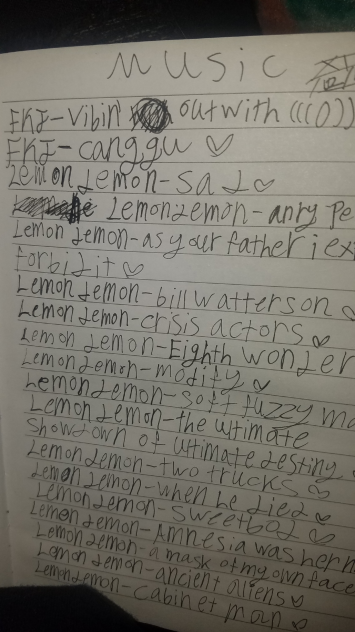 MUSIC
FKJ-vibin out with (((O))
FKJ-canggu ♡
Lemon Demon-sad ♡
Lemon Demon-anry pe
Lemon Demon-as your father i ex
forbid it ♡
Lemon Demon-bill watterson ♡
Lemon Demon-crisis actors ♡
Lemon Demon-Eighth wonder
Lemon Demon-modify ♡
Lemon Demon-soft fuzzy ma
Lemon Demon-the ultimate
showdown of ultimate destiny
Lemon Demon-two trucks ♡
Lemon Demon-when he died ♡
Lemon Demon-sweetbod ♡
Lemon Demon-Amnesia was her n
Lemon Demon-a mask of my own face
Lemon Demon-ancient aliens ♡
Lemon Demon-cabinet man ♡